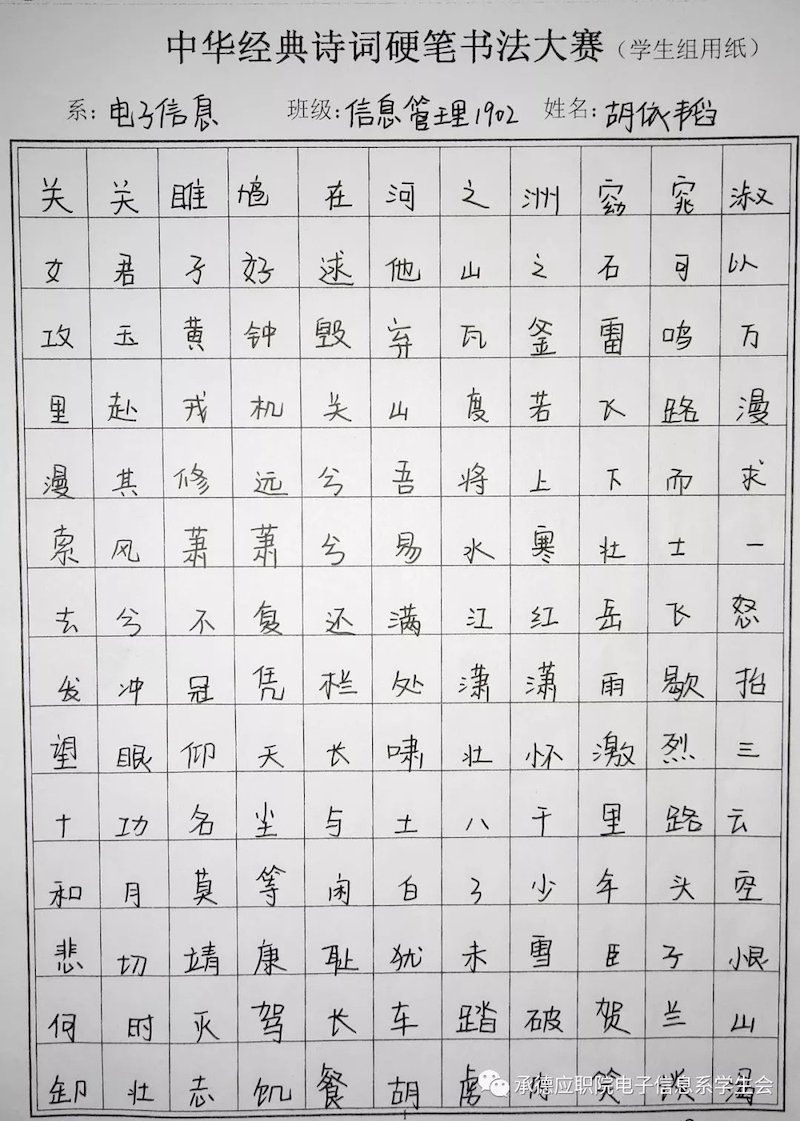 中华经典诗词硬笔书法大赛（学生组用纸）
系: 电子信息 班级: 信息管理1902 姓名: 胡依韬
关关雎鸠在河之洲窈窕淑
女君子好逑他山之石可以
攻玉黄钟毁弃瓦釜雷鸣万
里赴戎机关山度若飞路漫
漫其修远兮吾将上下而求
索风萧萧兮易水寒壮士一
去兮不复还满江红岳飞怒
发冲冠凭栏处潇潇雨歇抬
望眼仰天长啸壮怀激烈三
十功名尘与土八千里路云
和月莫等闲白了少年头空
悲切靖康耻犹未雪臣子恨
何时灭驾长车踏破贺兰山
卸壮志饥餐胡虏肉笑谈渴
承德应职院电子信息系学生会